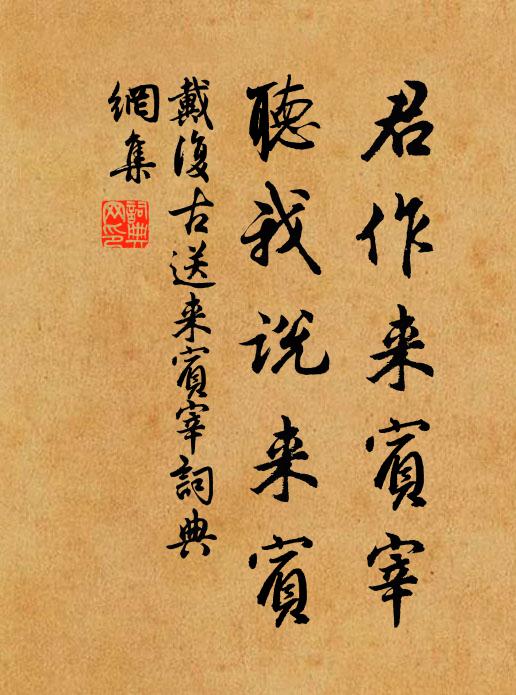 君作来賓宰
聽我説来賓
戴復古送来賓宰詞典
網集
詞典
网印